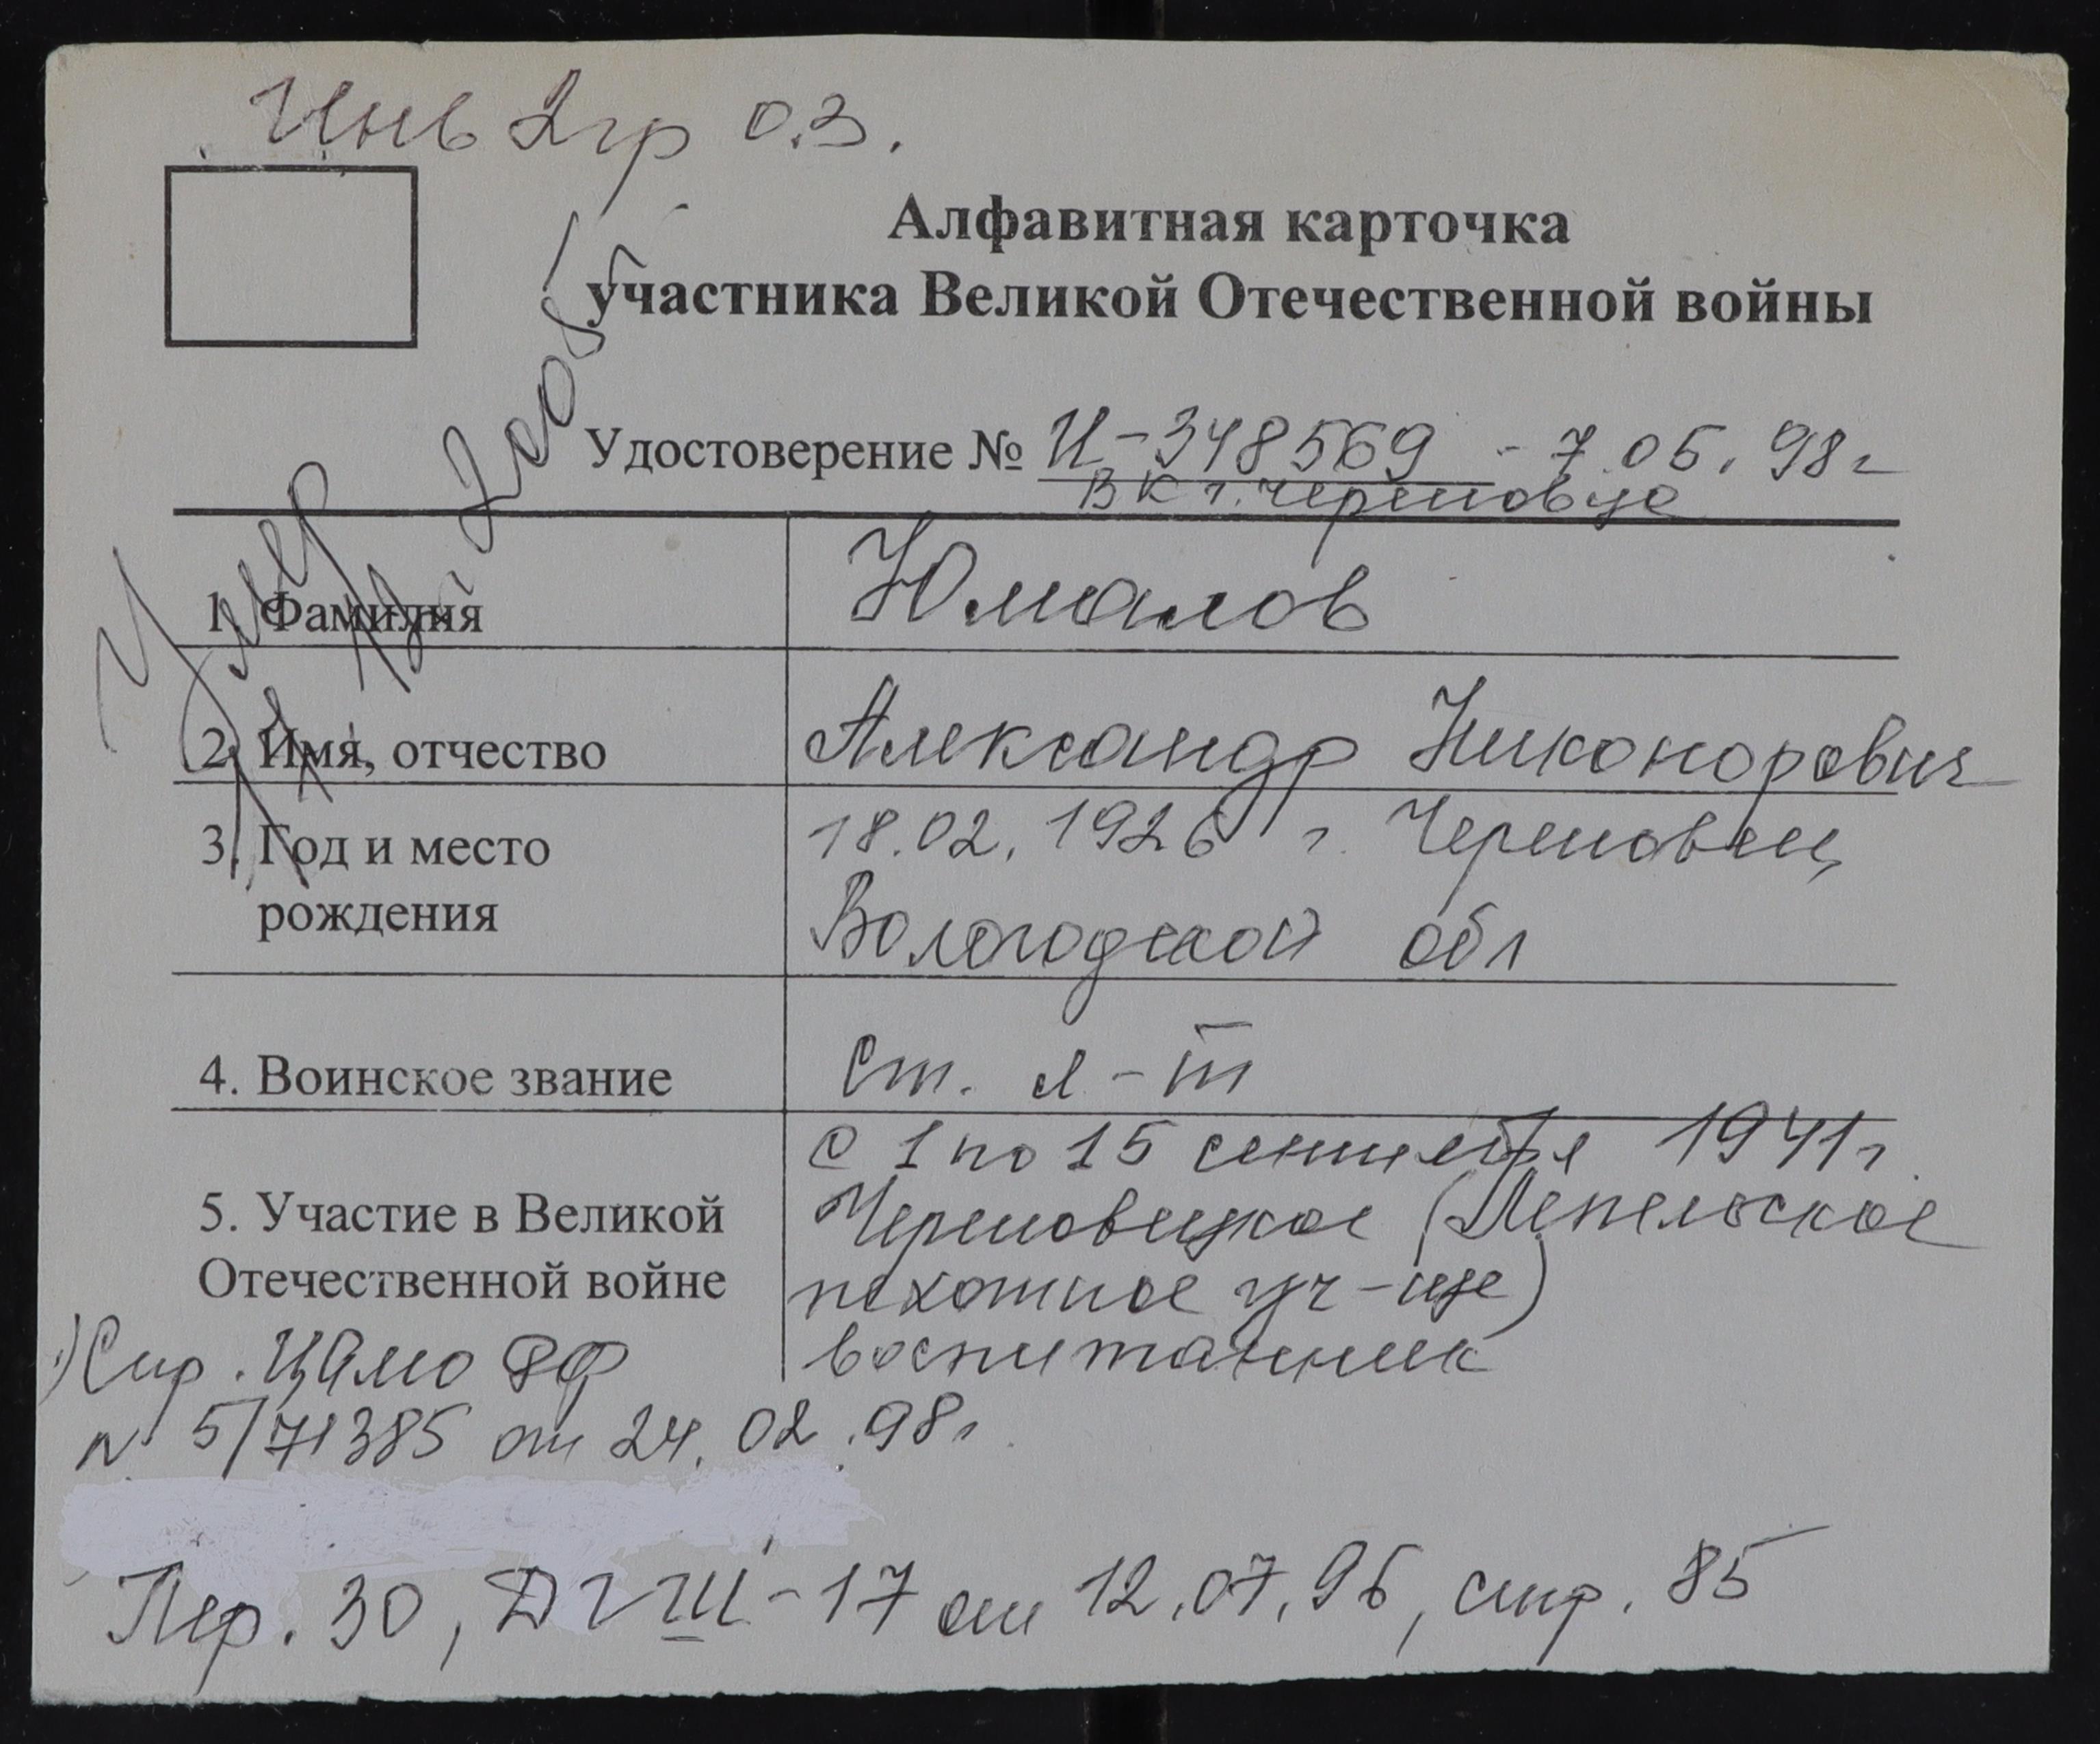 Инв 2гр О.З.
Алфавитная карточка
участника Великой Отечественной войны
Удостоверение № И-348569 - 7.05.98г
ВК г. Череповца
Умер
2005
1. Фамилия Юмалов
2. Имя, отчество Александр Никонорович
3. Год и место 18.02.1926 г. Череповец
рождения Вологодской обл
4. Воинское звание Ст. л-т
с 1 по 15 сентября 1941г.
5. Участие в Великой Череповецкое (Лепельское
Отечественной войне пехотное уч-ще)
воспитанник
Спр. ЦАМО РФ
N 5/71385 от 24.02.98г
Пер. 30, ДГШ-17 от 12.07.96, стр. 85